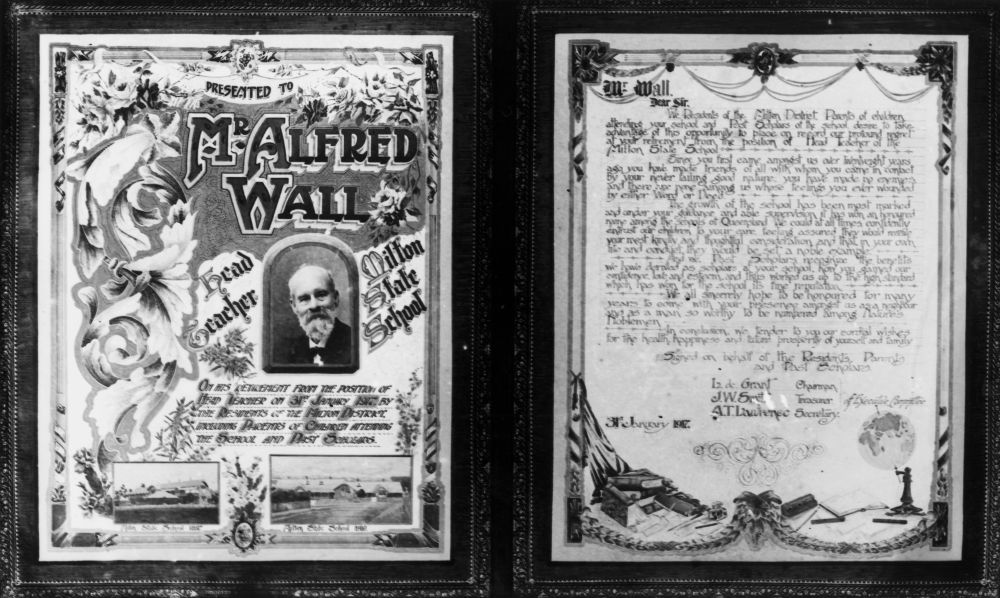 PRESENTED TO
MR. ALFRED
WALL
Head
Teacher
Milton
State
School
ON HIS RETIREMENT FROM THE POSITION OF
HEAD TEACHER ON 31ST JANUARY 1917, BY
THE RESIDENTS OF THE MILTON DISTRICT,
INCLUDING PARENTS OF CHILDREN ATTENDING
THE SCHOOL AND PAST SCHOLARS.
Milton State School
Milton State School
Mr. Wall.
Dear Sir.
We Residents of the Milton District, Parents of children
attending your school and Past Scholars of the school desire to take
advantage of this opportunity to place on record our profound regret
at your retirement from the position of Head Teacher of the
Milton State School
Since you first came amongst us over twentyeight years
ago you have made friends of all with whom you came in contact
by your never failing good nature, you have made no enemies
and there are none among us whose feelings you ever wounded
by either Word or Deed
The growth of the school has been most marked
and under your guidance and able supervision it has won an honoured
name among the schools of Queensland. We could at all times confidently
entrust our children to your care feeling assured they would receive
your most kindly and thoughtful consideration and that in your own
life and conduct they would be set a noble example
And we Past Scholars recognise the benefits
we have derived as scholars at your school, how you gained our
confidence, love and esteem, and thus worked us up to the high standard
which has won for the school its fine reputation.
We all sincerely hope to be honoured for many
years to come with your presence amongst us as a neighbour
and as a man so worthy to be numbered among Nature's
Noblemen.
In conclusion, we tender to you our cordial wishes
for the health, happiness and future prosperity of yourself and family
Signed on behalf of the Residents, Parents
and Past Scholars.
L. de Grant Chairman
J.W. Treasurer of Executive Committee
A.T. Lawrence Secretary.
31st January 1917.